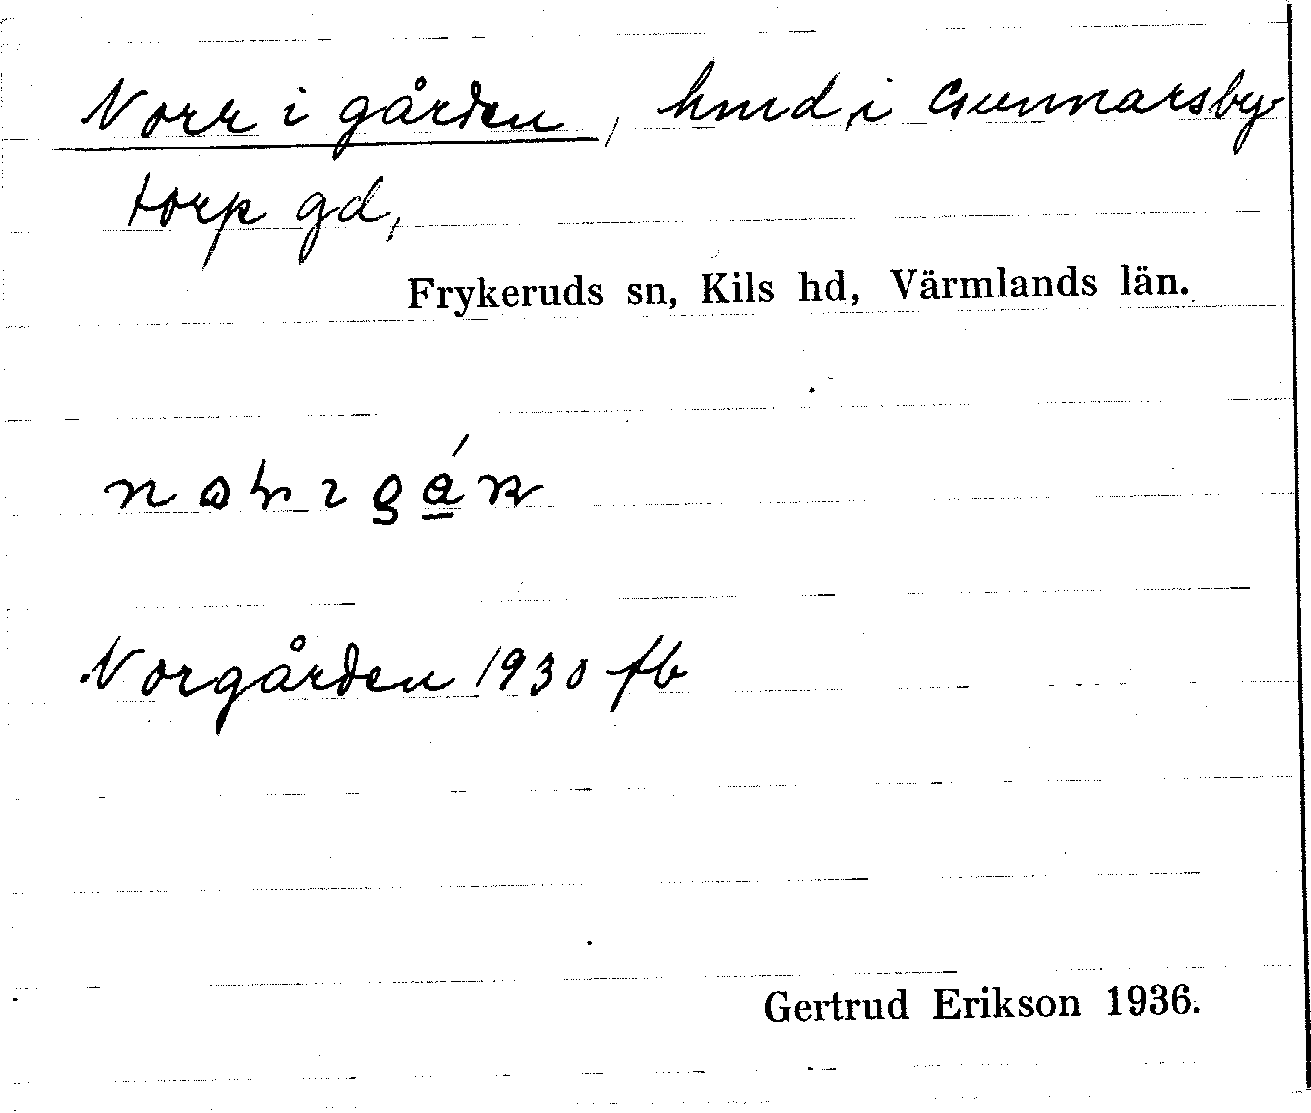 Norr i gården, hmd i Gunnarsby
torp gd,
Frykeruds sn, Kils hd, Värmlands län.
Norgården 1930 fb
Gertrud Erikson 1936.